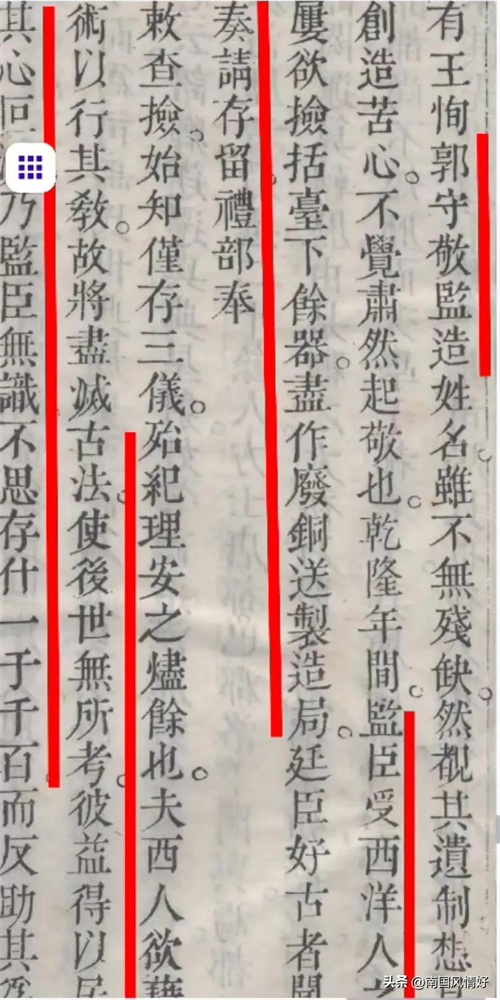 有王恂郭守敬監造姓名。雖不無殘缺。然覩其遺制想
創造苦心。不覺肅然起敬也。乾隆年間。監臣受西洋人
屢欲撿括臺下餘器。盡作廢銅送製造局。廷臣好古者聞
奏請存留禮部奉
敕查撿。始知僅存三儀。殆紀理安之燼餘也。夫西人欲藉
術以行其敎。故將盡滅古法。使後世無所考。彼益得以居
其心叵乃監臣無識不思存什一于千百而反助其爲
头条 @南国风情好